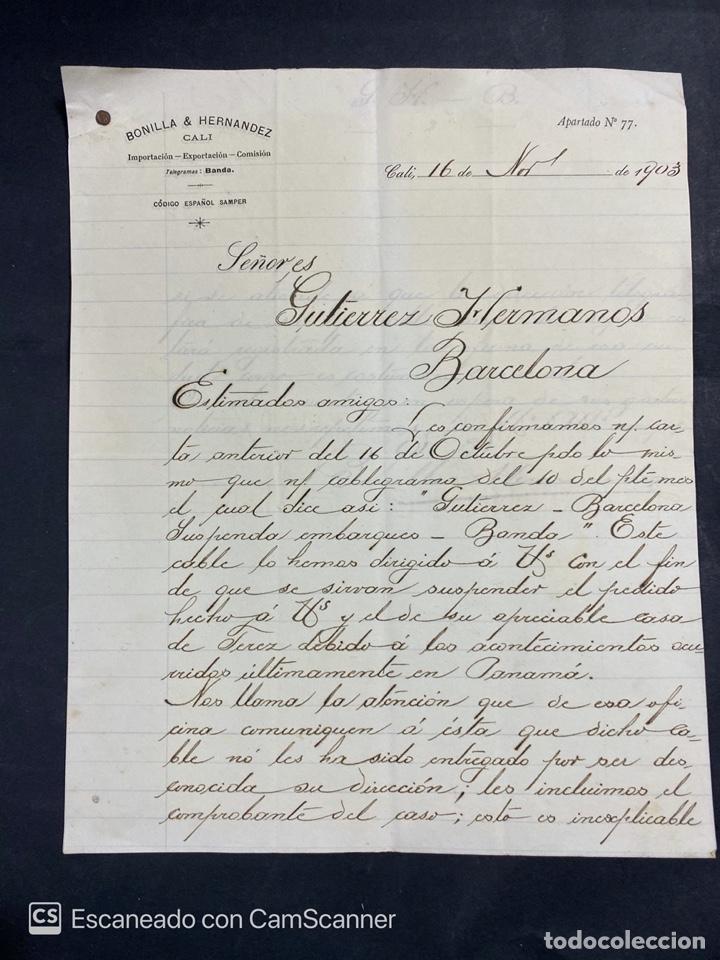 BONILLA & HERNANDEZ
CALI
Importación — Exportación — Comisión
Telegramas: Banda.
CÓDIGO ESPAÑOL SAMPER
Apartado Nº 77.
Cali, 16 de Nov de 1903
Señores
Gutierrez Hermanos
Barcelona
Estimados amigos:
Les confirmamos n/. car-
ta anterior del 16 de Octubre ppdo lo mis-
mo que n/. cablegrama del 10 del pte mes
el cual dice asi: "Gutierrez - Barcelona
Suspenda embarques - Banda". Este
cable lo hemos dirigido á Us con el fin
de que se sirvan suspender el pedido
hecho á Us y el de su apreciable casa
de Jerez debido á los acontecimientos ocu-
rridos últimamente en Panamá.
Nos llama la atención que de esa ofi
cina comuniquen á ésta que dicho ca-
ble nó les ha sido entregado por ser des-
conocida su dirección; les incluimos el
comprobante del caso; esto es inexplicable
CS Escaneado con CamScanner
todocoleccion